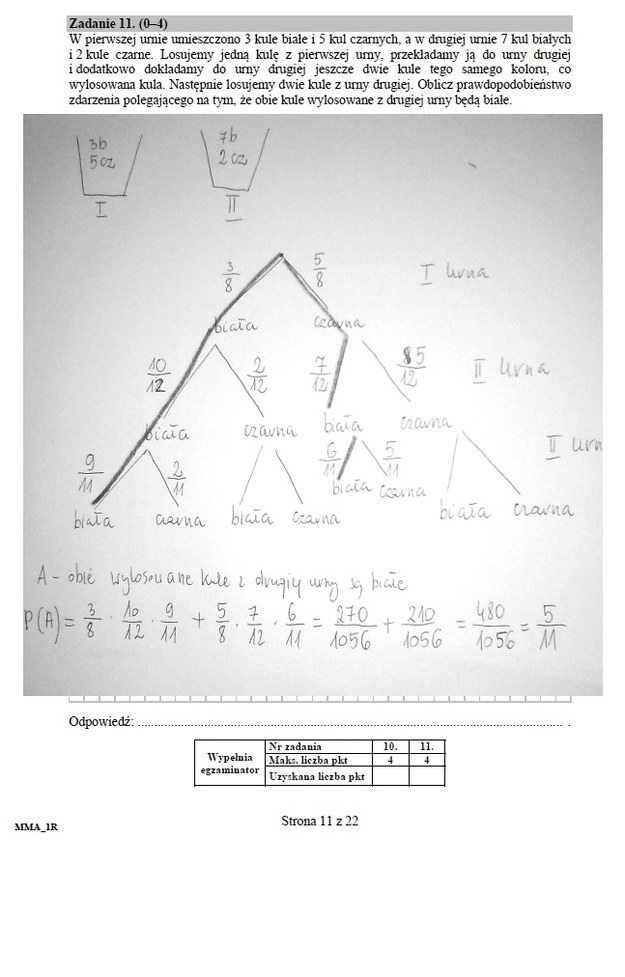 Zadanie 11. (0–4)
W pierwszej urnie umieszczono 3 kule białe i 5 kul czarnych, a w drugiej urnie 7 kul białych
i 2 kule czarne. Losujemy jedną kulę z pierwszej urny, przekładamy ją do urny drugiej
i dodatkowo dokładamy do urny drugiej jeszcze dwie kule tego samego koloru, co
wylosowana kula. Następnie losujemy dwie kule z urny drugiej. Oblicz prawdopodobieństwo
zdarzenia polegającego na tym, że obie kule wylosowane z drugiej urny będą białe.
3b 7b
5cz 2cz
I II
3/8 5/8 I urna
biała czarna
10/12 2/12 7/12 5/12 II urna
biała czarna biała czarna
9/11 2/11 6/11 5/11 II urn
biała czarna biała czarna biała czarna biała czarna
A - obie wylosowane kule z drugiej urny są białe
P(A) = 3/8 · 10/12 · 9/11 + 5/8 · 7/12 · 6/11 = 270/1056 + 210/1056 = 480/1056 = 5/11
Odpowiedź: .
Wypełnia egzaminator
Nr zadania 10. 11.
Maks. liczba pkt 4 4
Uzyskana liczba pkt
Strona 11 z 22
MMA_1R